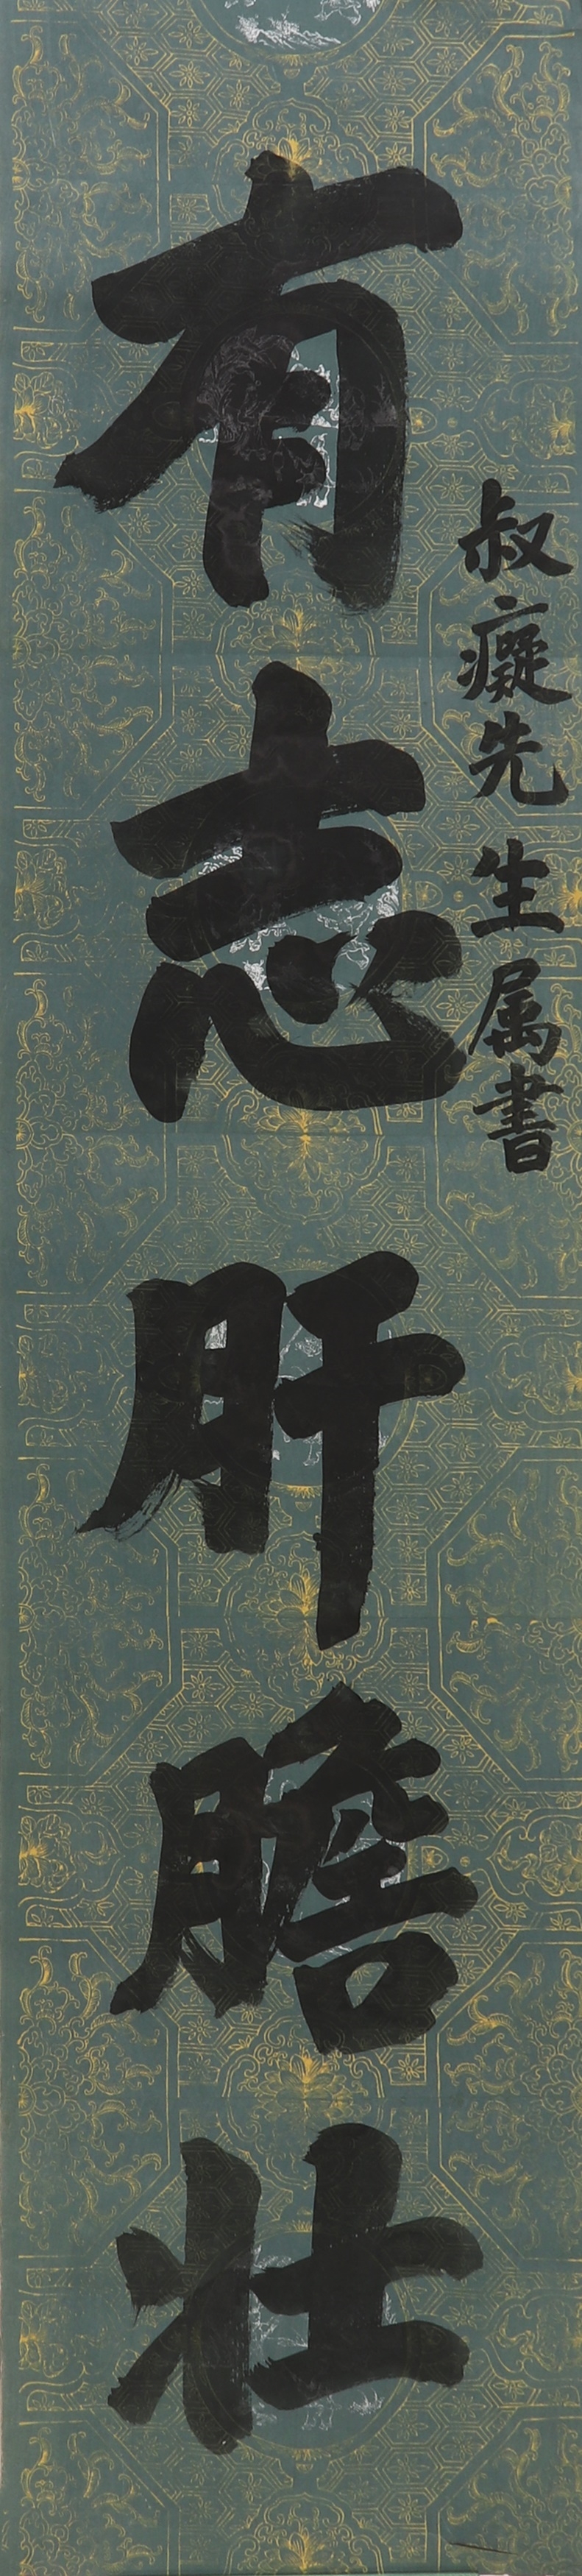 叔癡先生属書
有志肝膽壯